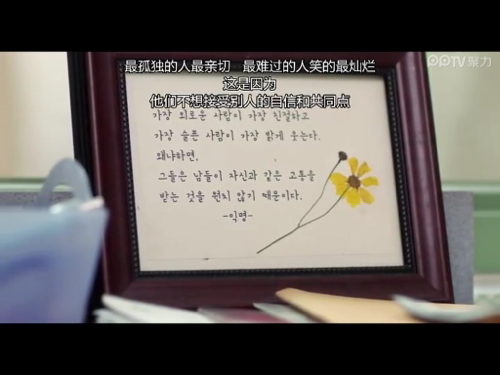 PPTV聚力
最孤独的人最亲切 最难过的人笑的最灿烂
这是因为
他们不想接受别人的自信和共同点
가장 외로운 사람이 가장 친절하고
가장 슬픈 사람이 가장 밝게 웃는다.
왜냐하면,
그들은 남들이 자신과 같은 고통을
받는 것을 원치 않기 때문이다.
-익명-